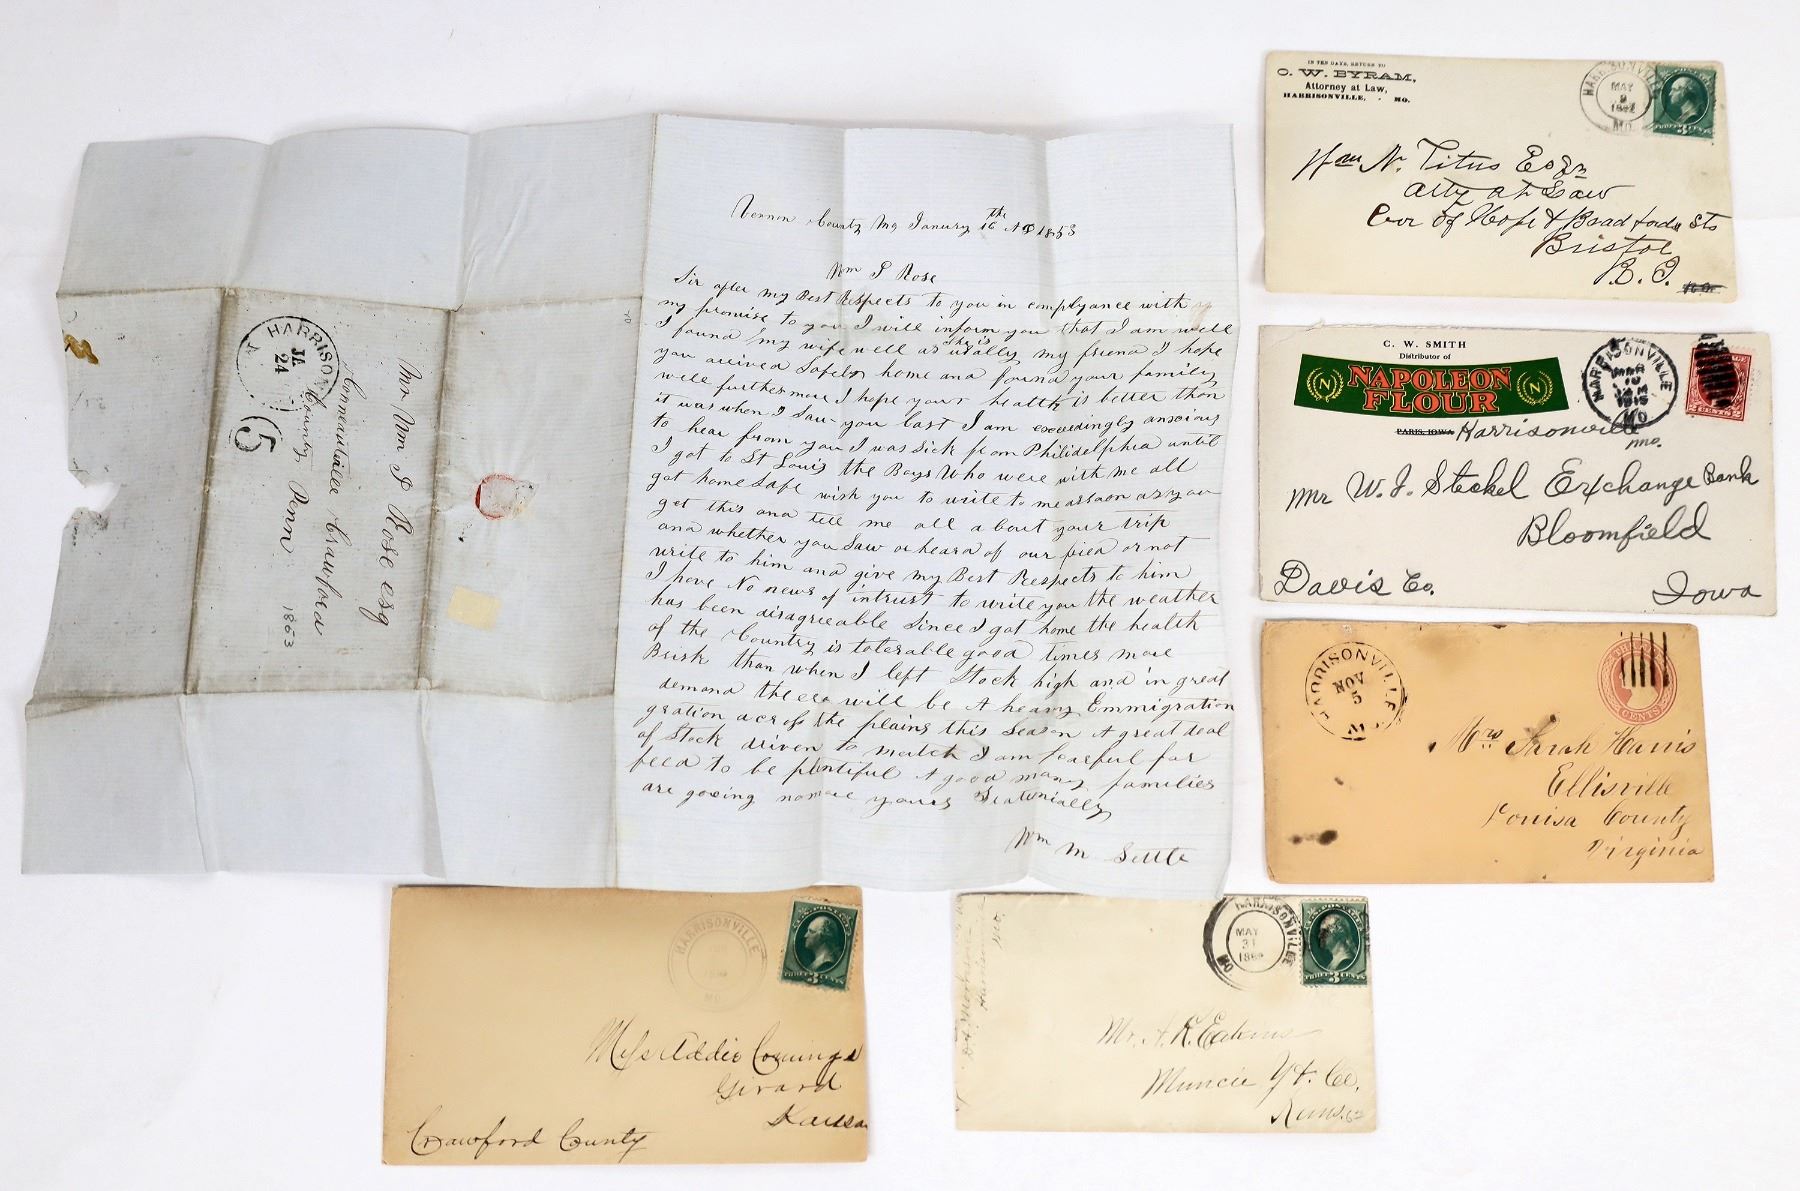 Vernon County Mo January 16th AD 1853
Wm P Rose
Sir after my Best Respects to you in complyance with
my promise to you I will inform you that I am well
I found my wife well as she is usally my friend I hope
you arived Safely home and found your family
well furthermore I hope your health is better than
it was when I Saw you last I am exceedingly anxious
to hear from you I was Sick from Philidelphia until
I got to St Louis the Boys Who were with me all
got home Safe wish you to write to me as soon as you
get this and tell me all about your trip
and whether you Saw or heard of our or not
write to him and give my Best Respects to him
I have No news of intrust to write you the weather
has been disagreeable Since I got home the health
of the Country is tolerable good times more
Brisk than when I left Stock high and in great
demand there will be A heavy Emmigration
gration across the plains this Season A great deal
of Stock driven to match I am fearful for
feed to be plentiful A good many families
are goeing nomore yours
Wm M Settle
HARRISON
JA
24
5
Mr Wm P Rose esq
Conneautville Crawford
County Penn
1853
IN TEN DAYS, RETURN TO
O. W. BYRAM,
Attorney at Law,
HARRISONVILLE, - MO.
HARRISONVILLE
MAY
9
1882
MO.
THREE 3 CENTS
Wm N. Titus Esqr
Atty at Law
Cor of Hope & Bradfords Sts
Bristol
R.I.
C. W. SMITH
Distributor of
N NAPOLEON N
FLOUR
PARIS, IOWA Harrisonville
Mo.
HARRISONVILLE
MAR
10
1915
MO
2 CENTS 2
Mr W.J. Steckel Exchange Bank
Bloomfield
Davis Co. Iowa
HARRISONVILLE
NOV
5
CENTS
Mrs Sarah Harris
Ellisville
Louisa County
Virginia
HARRISONVILLE
MO.
U.S. POSTAGE
THREE 3 CENTS
Miss Addie Comings
Girard
Kansas
Crawford County
HARRISONVILLE
MAY
31
MO
THREE 3 CENTS
Harrisonville
Mo
Mr. A. R. Eakins
Muncie Yt. Co.
Kans.